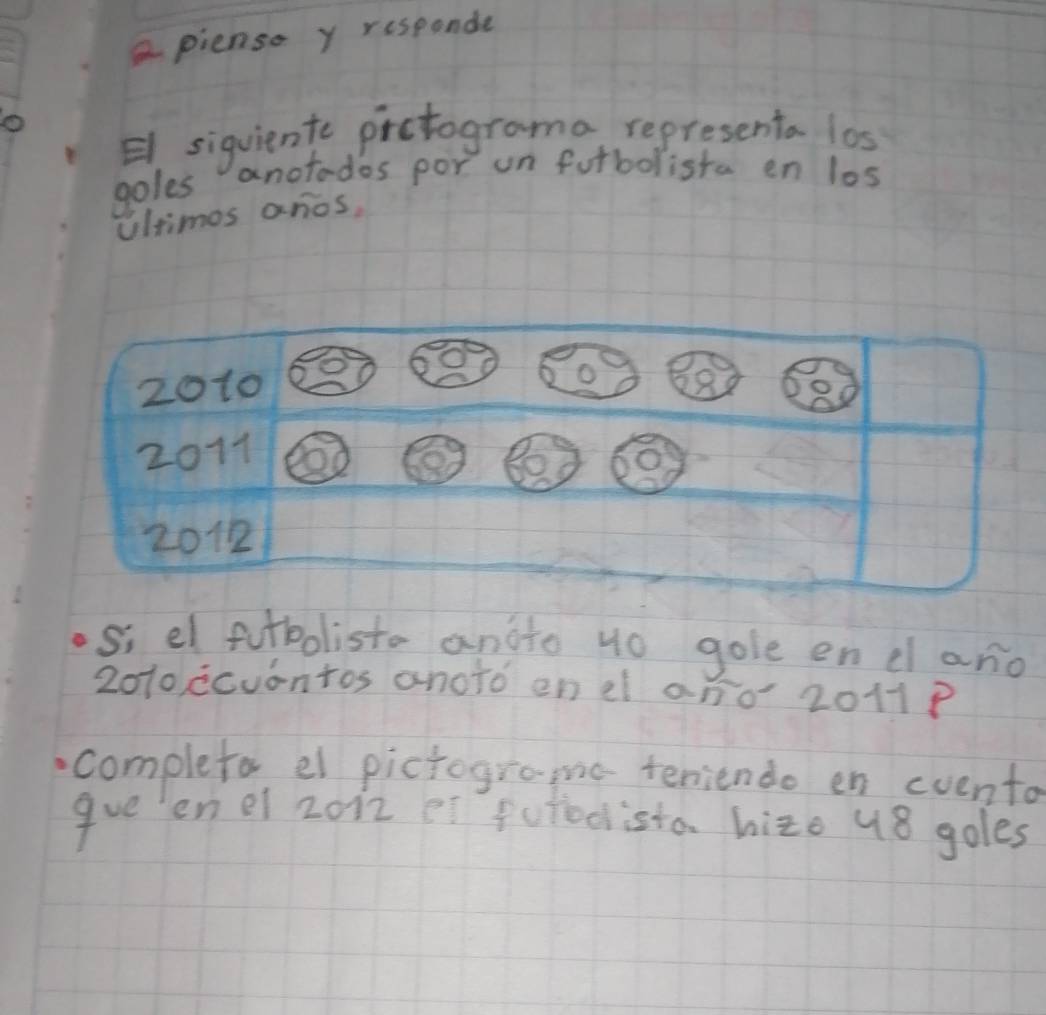 a pienso y responde
El siguiente pictograma representa los
goles anotados por un futbolista en los
últimos años.
2010
2011
2012
• Si el futbolista anóto 40 gole en el año
2010 ¿cuántos anotó en el año 2011?
• completa el pictograma teniendo en cuenta
que en el 2012 el futbolista hizo 48 goles